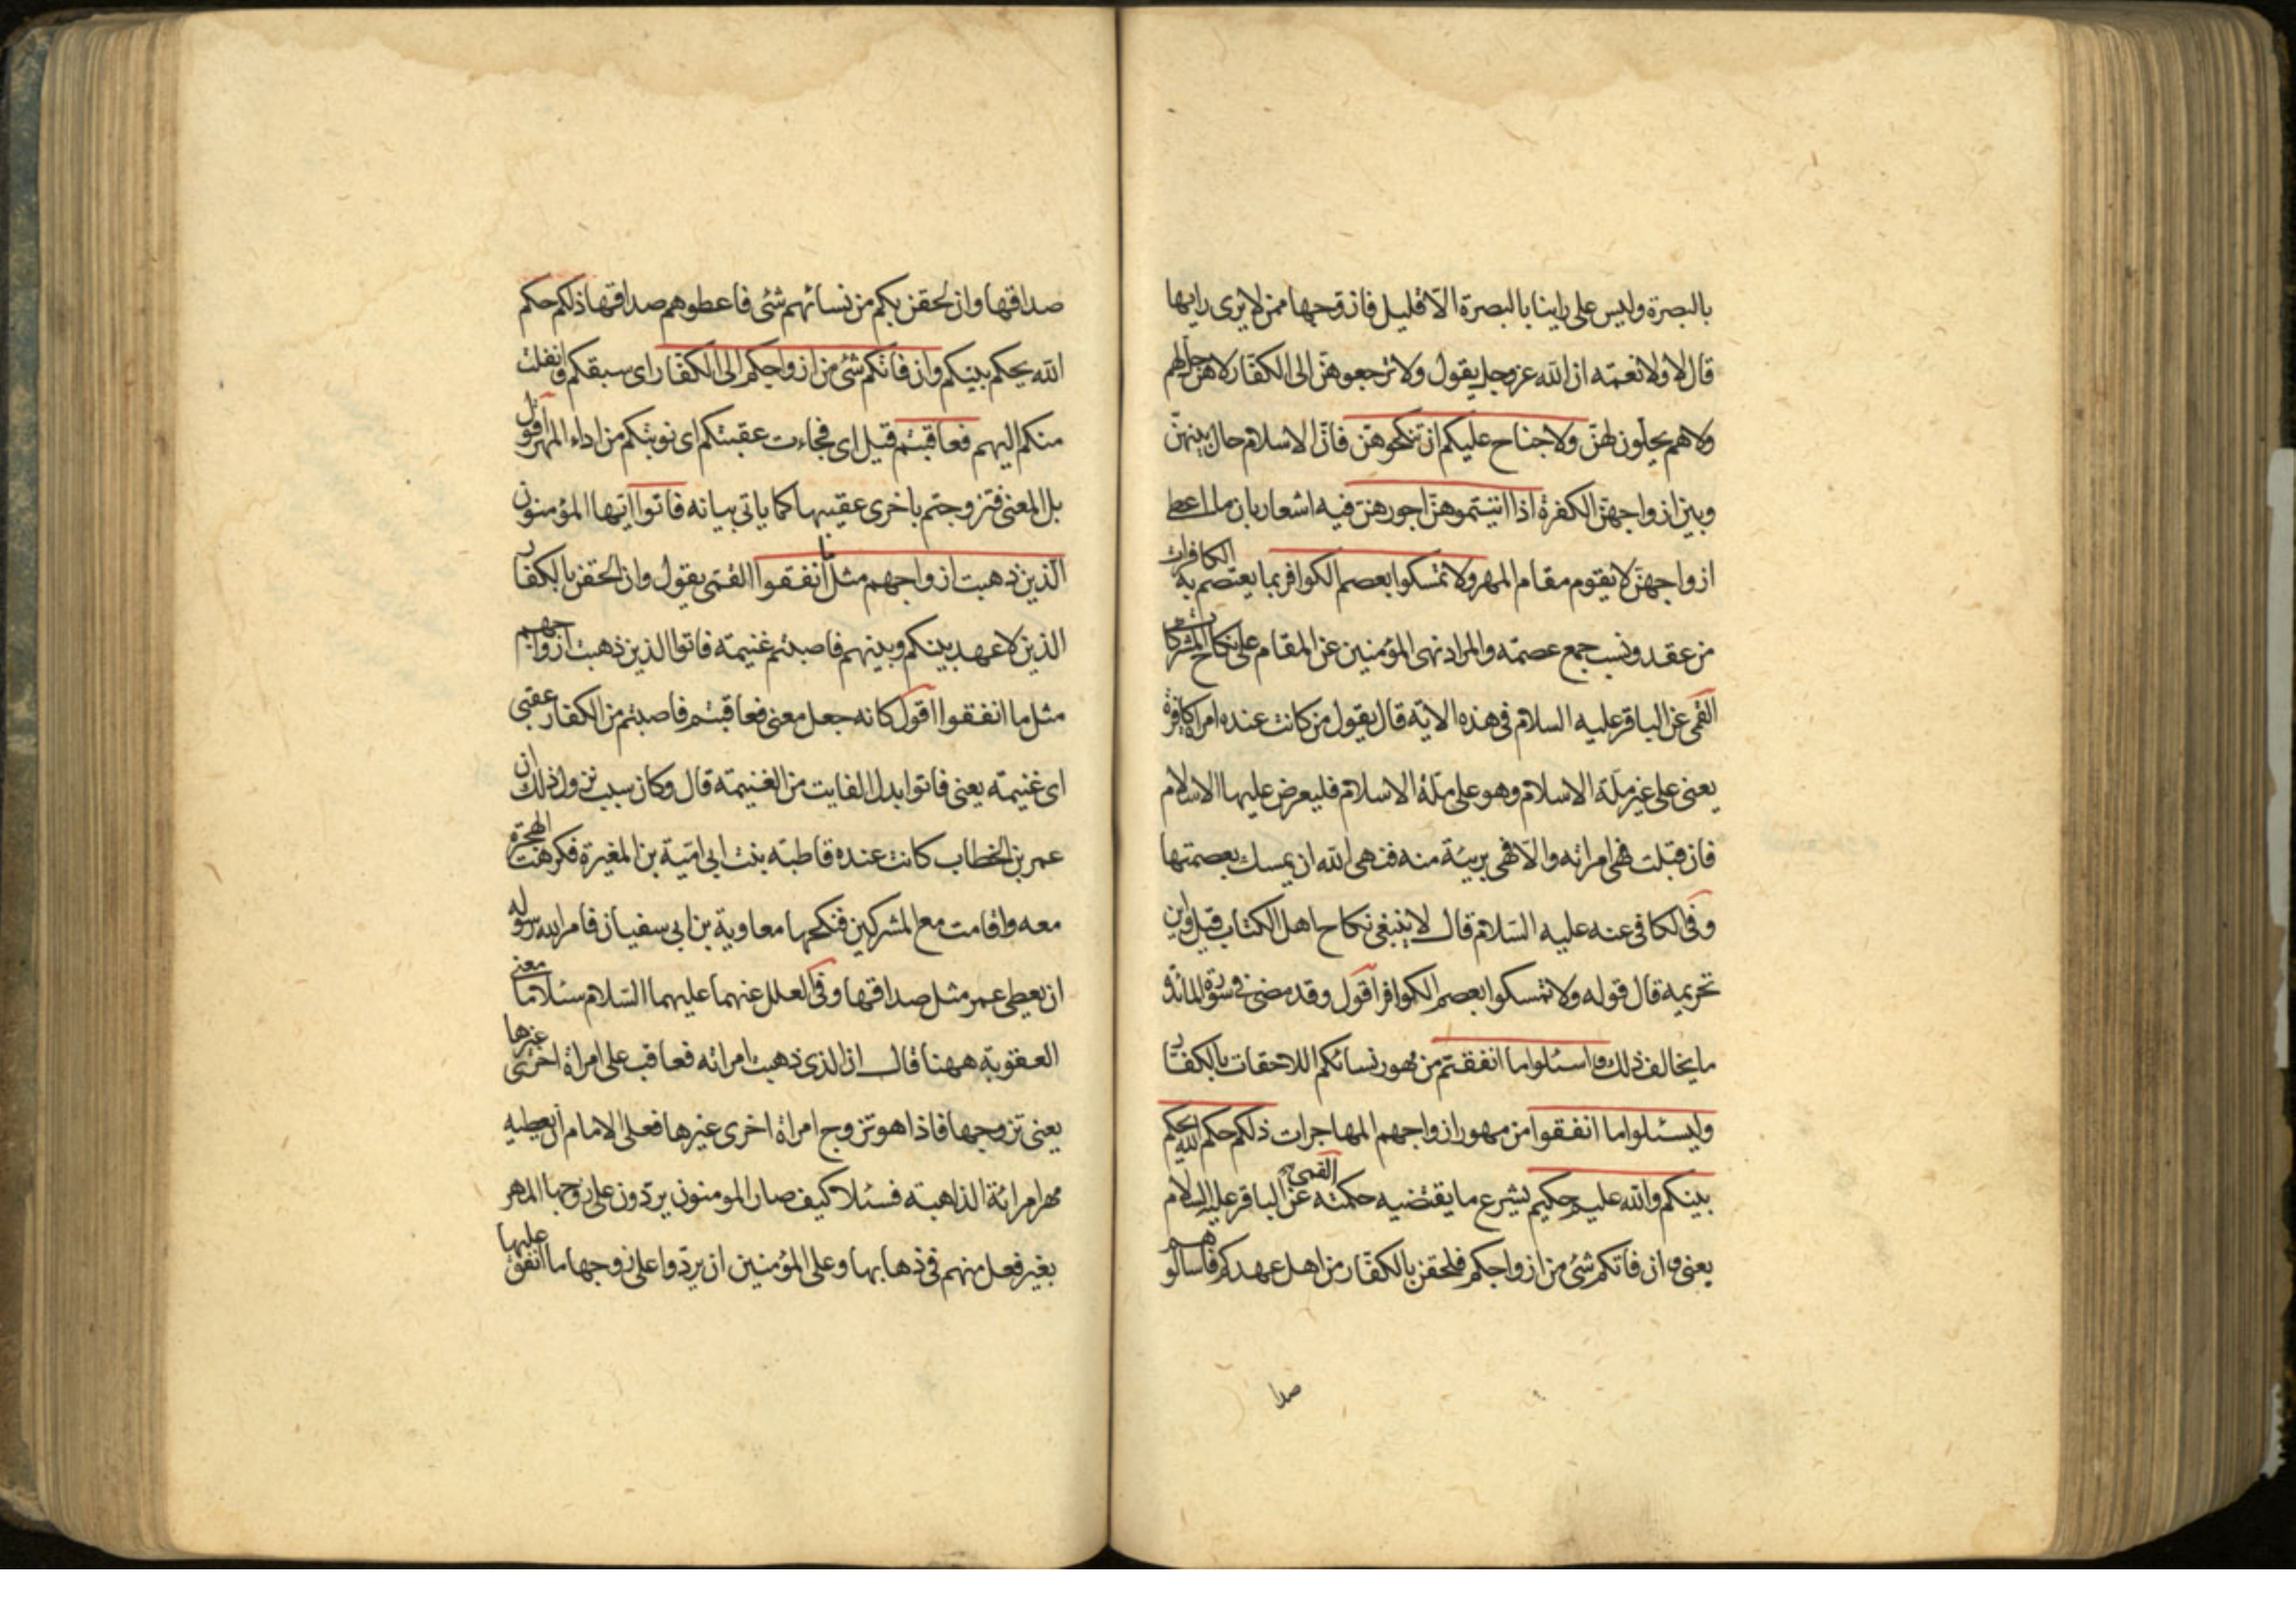 بالبصرة وليس على راينا بالبصرة الا قليل فازوجها ممن لا يرى رايها
قال لا ولا نعمة ان الله عز وجل يقول ولا ترجعوهن الى الكفار لا هن حل لهم
ولا هم يحلون لهن ولا جناح عليكم ان تنكحوهن فان الاسلام حال بينهن
وبين ازواجهن الكفرة اذا اتيتموهن اجورهن فيه اشعار بان ما اعطى
ازواجهن لا يقوم مقام المهر ولا تمسكوا بعصم الكوافر بما يعتصم به الكافرات
من عقد ونسب جمع عصمة والمراد نهى المؤمنين عن المقام على نكاح المشركات
القمى عن الباقر عليه السلام فى هذه الاية قال يقول من كانت عنده امراة كافرة
يعنى على غير ملة الاسلام وهو على ملة الاسلام فليعرض عليها الاسلام
فان قبلت فهى امراته والا فهى بريئة منه فنهى الله ان يمسك بعصمتها
وفى الكافى عنه عليه السلام قال لا ينبغى نكاح اهل الكتاب قيل واين
تحريمه قال قوله ولا تمسكوا بعصم الكوافر اقول وقد مضى فى سورة المائدة
ما يخالف ذلك واسئلوا ما انفقتم من مهور نسائكم اللاحقات بالكفار
وليسئلوا ما انفقوا من مهور ازواجهم المهاجرات ذلكم حكم الله يحكم
بينكم والله عليم حكيم يشرع ما يقتضيه حكمته القمى عن الباقر عليه السلام
يعنى وان فاتكم شئ من ازواجكم فلحقن بالكفار من اهل عهدكم فاسالوهم
صدا
صداقها وان لحقن بكم من نسائهم شئ فاعطوهم صداقها ذلكم حكم
الله يحكم بينكم وان فاتكم شئ من ازواجكم الى الكفار اى سبقكم وانفلت
منكم اليهم فعاقبتم قيل اى فجاءت عقبتكم اى نوبتكم من اداء المهر اقول
بل المعنى فتزوجتم باخرى عقيبها كما ياتى بيانه فاتوا ايها المؤمنون
الذين ذهبت ازواجهم مثل ما أنفقوا القمى يقول وان لحقن بالكفار
الذين لا عهد بينكم وبينهم فاصبتم غنيمة فاتوا الذين ذهبت ازواجهم
مثل ما انفقوا اقول كانه جعل معنى فعاقبتم فاصبتم من الكفار عقبى
اى غنيمة يعنى فاتوا بدل الفايت من الغنيمة قال وكان سبب نزول ذلك ان
عمر بن الخطاب كانت عنده فاطمة بنت ابى امية بن المغيرة فكرهت الهجرة
معه واقامت مع المشركين فنكحها معاوية بن ابى سفيان فامر الله رسوله
ان يعطى عمر مثل صداقها وفى العلل عنهما عليهما السلام سئلا ما معنى
العقوبة ههنا قال ان الذى ذهبت امراته فعاقب على امراة اخرى غيرها
يعنى تزوجها فاذا هو تزوج امراة اخرى غيرها فعلى الامام ان يعطيه
مهر امرائة الذاهبة فسئلا كيف صار المومنون يردون على زوجها المهر
بغير فعل منهم فى ذهابها وعلى المؤمنين ان يردوا على زوجها ما انفق عليها